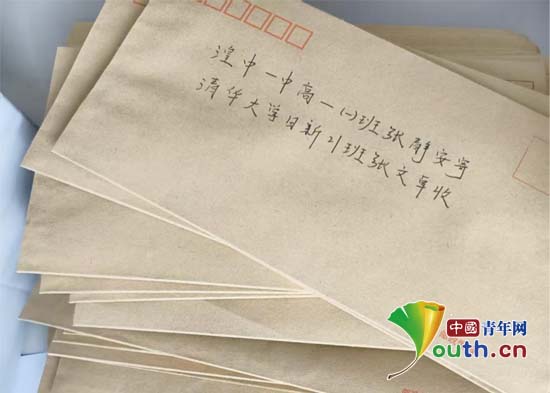 湟中一中高一(一)班张静安寄
清华大学日新21班张文卓收
中國青年网
youth.cn